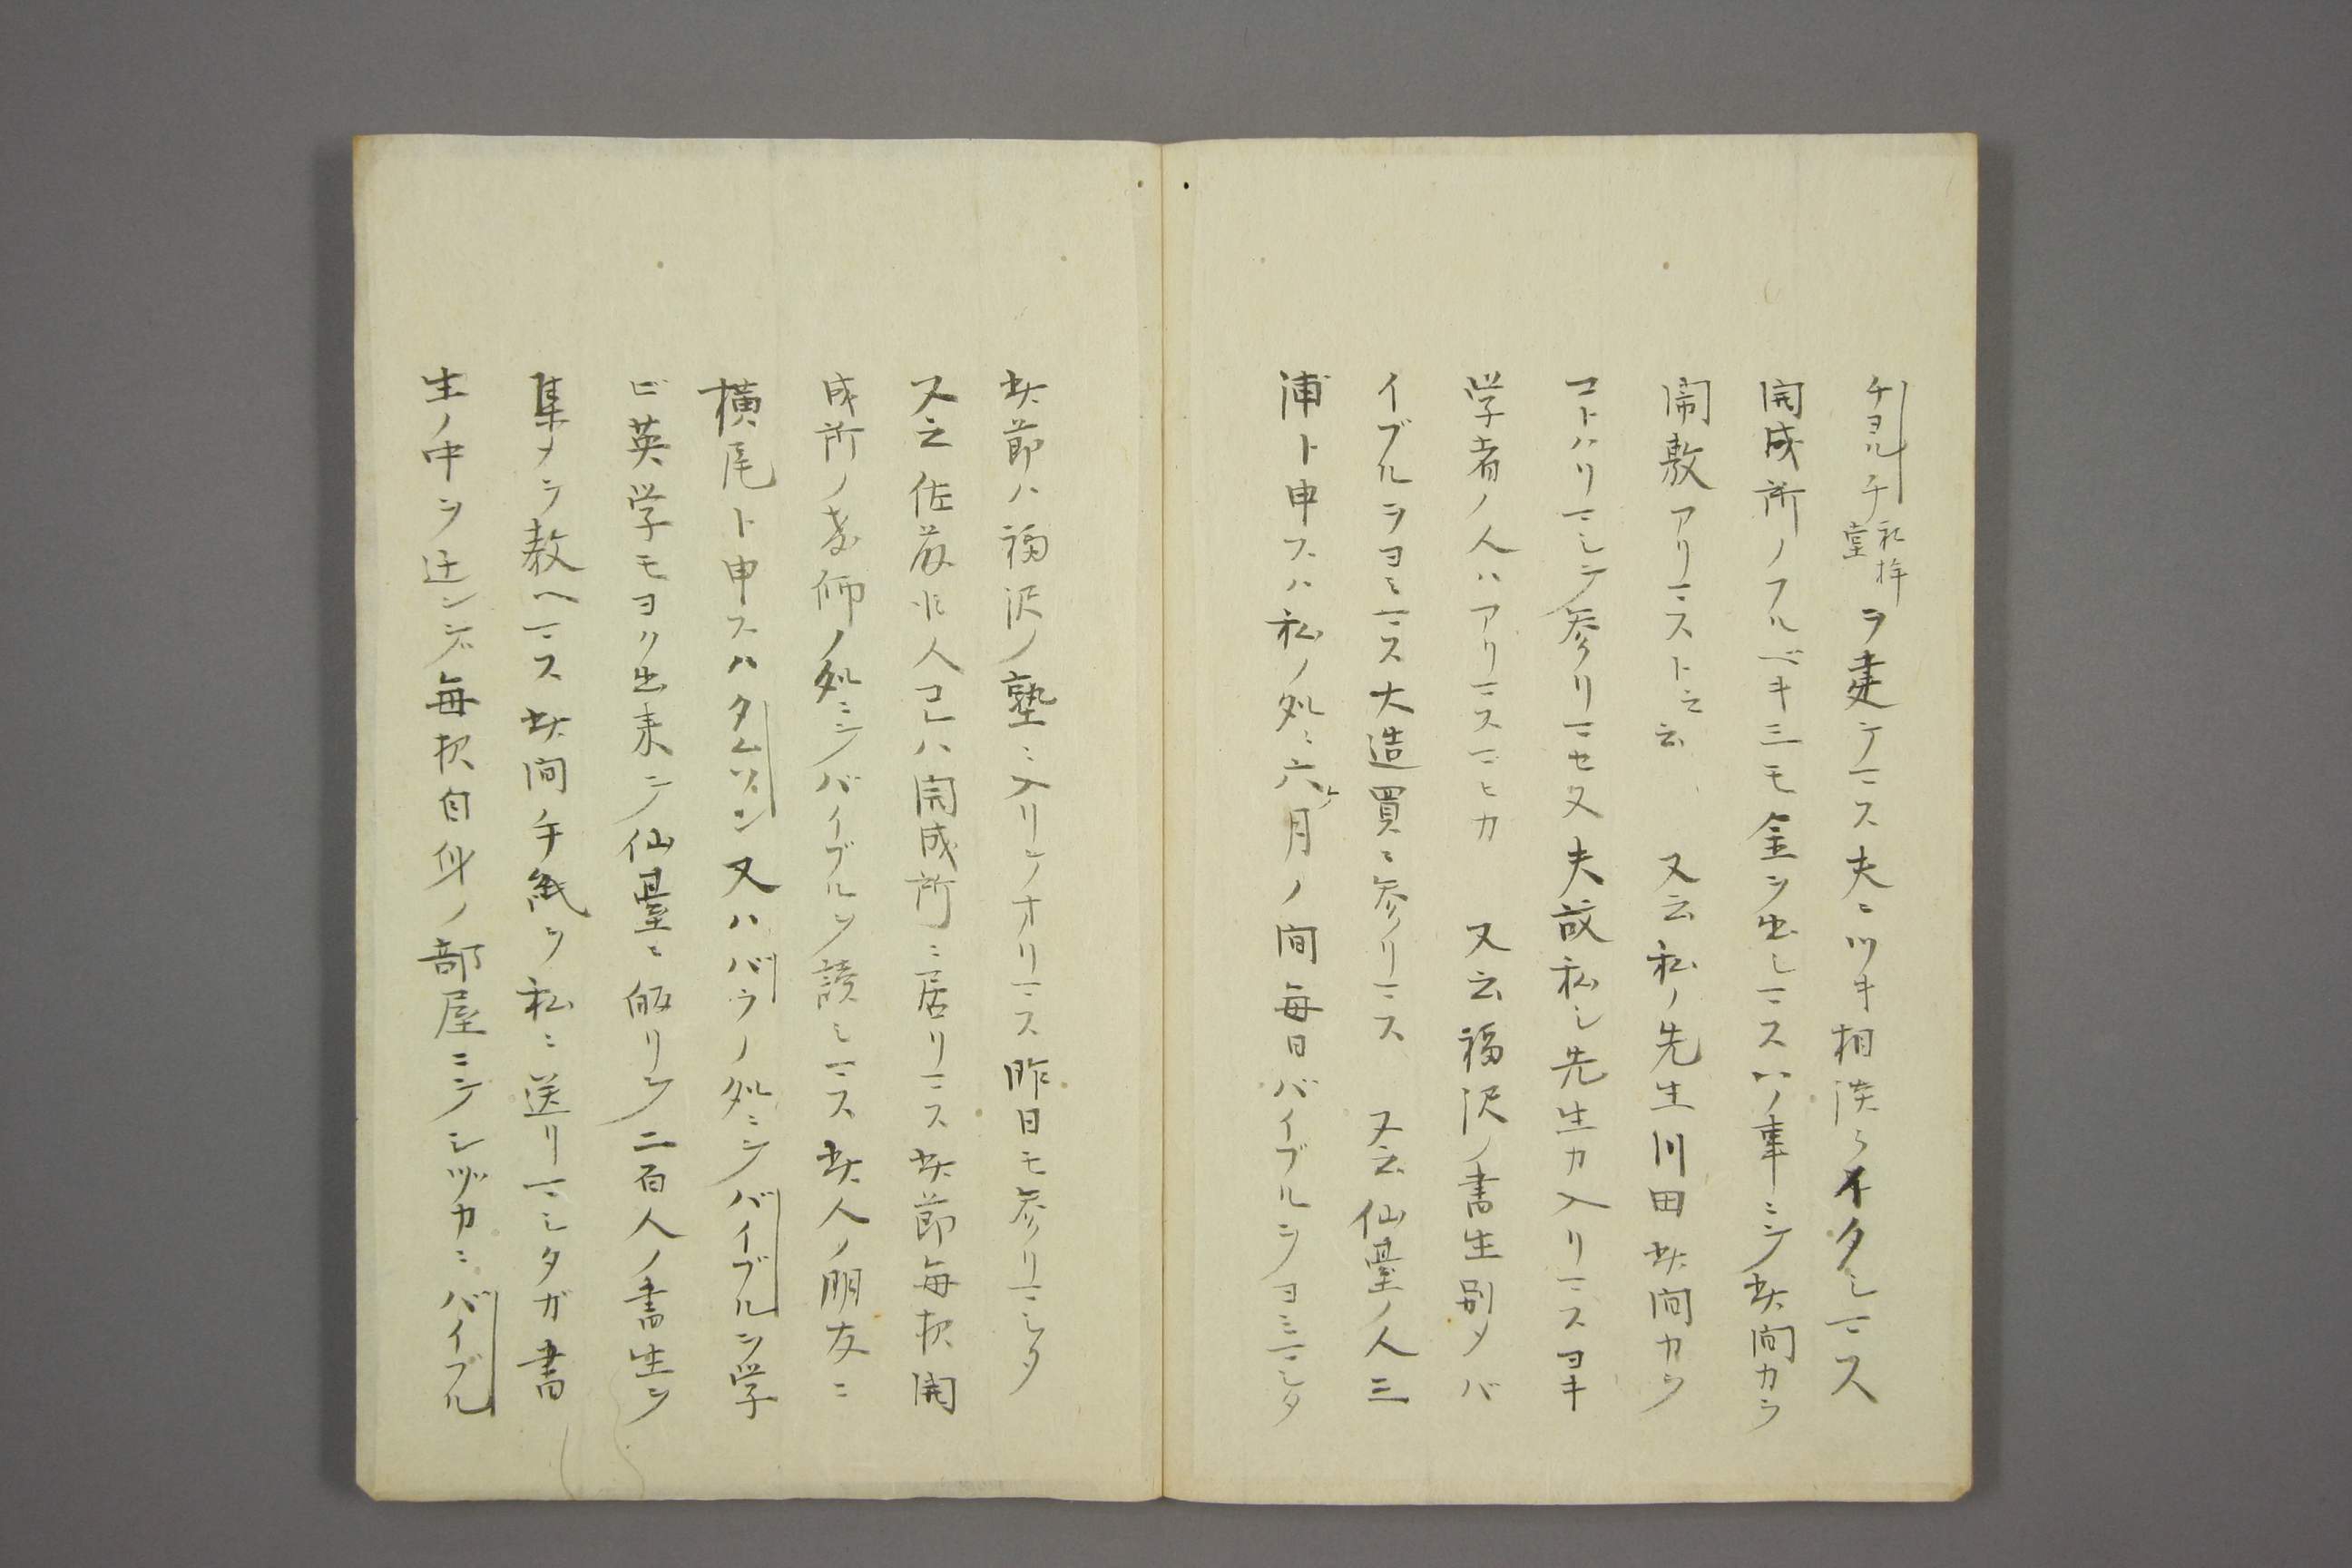 チヨルチ礼拝堂ヲ建テマス夫ニツキ相談ヲイタシマス
開成所ノフルベキ三モ金ヲ出シマスソノ事ニテ此間カラ
開敷アリマスト云云 又云私ノ先生川田此間カラ
コトハリマシテ参リマセヌ夫故私シ先生カ入リマスヨキ
学者ノ人ハアリマスマヒカ 又云福沢ノ書生別メバ
イブルヲヨミマス大造買ニ参リマス 又云仙臺ノ人三
浦ト申スハ私ノ処ニ六ケ月ノ間毎日バイブルヲヨミマシタ
此節ハ福沢ノ塾ニ入リテオリマス昨日モ参リマシタ
又云佐藤此人コレハ開成所ニ居リマス此節毎夜開
成所ノ教師ノ処ニテバイブルヲ読ミマス此人ノ朋友ニ
横尾ト申スハタムソン又ハバラノ処ニテバイブルヲ学
ビ英学モヨク出来テ仙臺ニ皈リテ二百人ノ書生ヲ
集メテ教ヘマス此間手紙ヲ私ニ送リマシタガ書
生ノ中ヲ迂ンデ毎夜自身ノ部屋ニテシヅカニバイブル